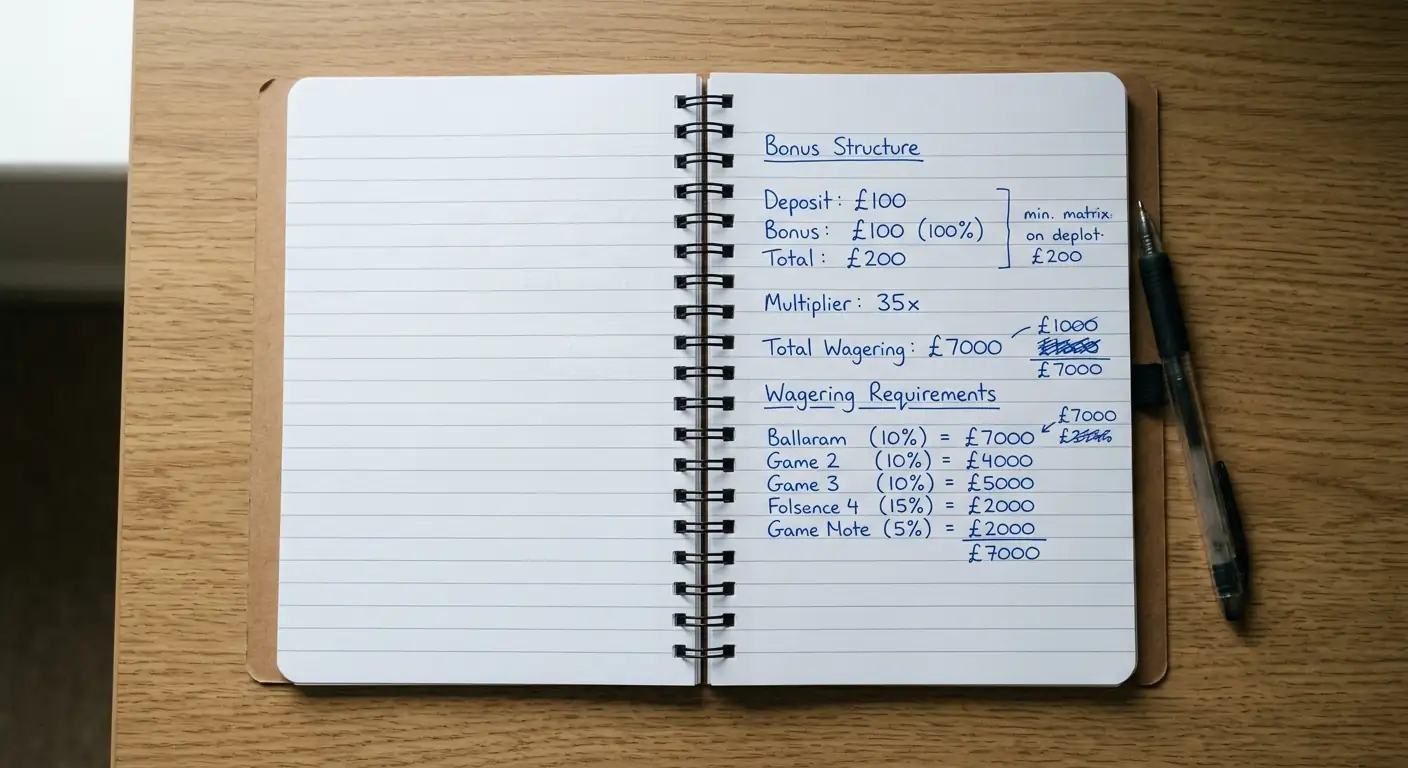 Bonus Structure
Deposit: £100
Bonus: £100 (100%)
Total: £200
min. matrix:
on deplot.
£200
Multiplier: 35x
Total Wagering: £7000
£1000
£7000
Wagering Requirements
Ballaram (10%) = £7000
£7000
Game 2 (10%) = £4000
Game 3 (10%) = £5000
Folsence 4 (15%) = £2000
Game Mote (5%) = £2000
£7000